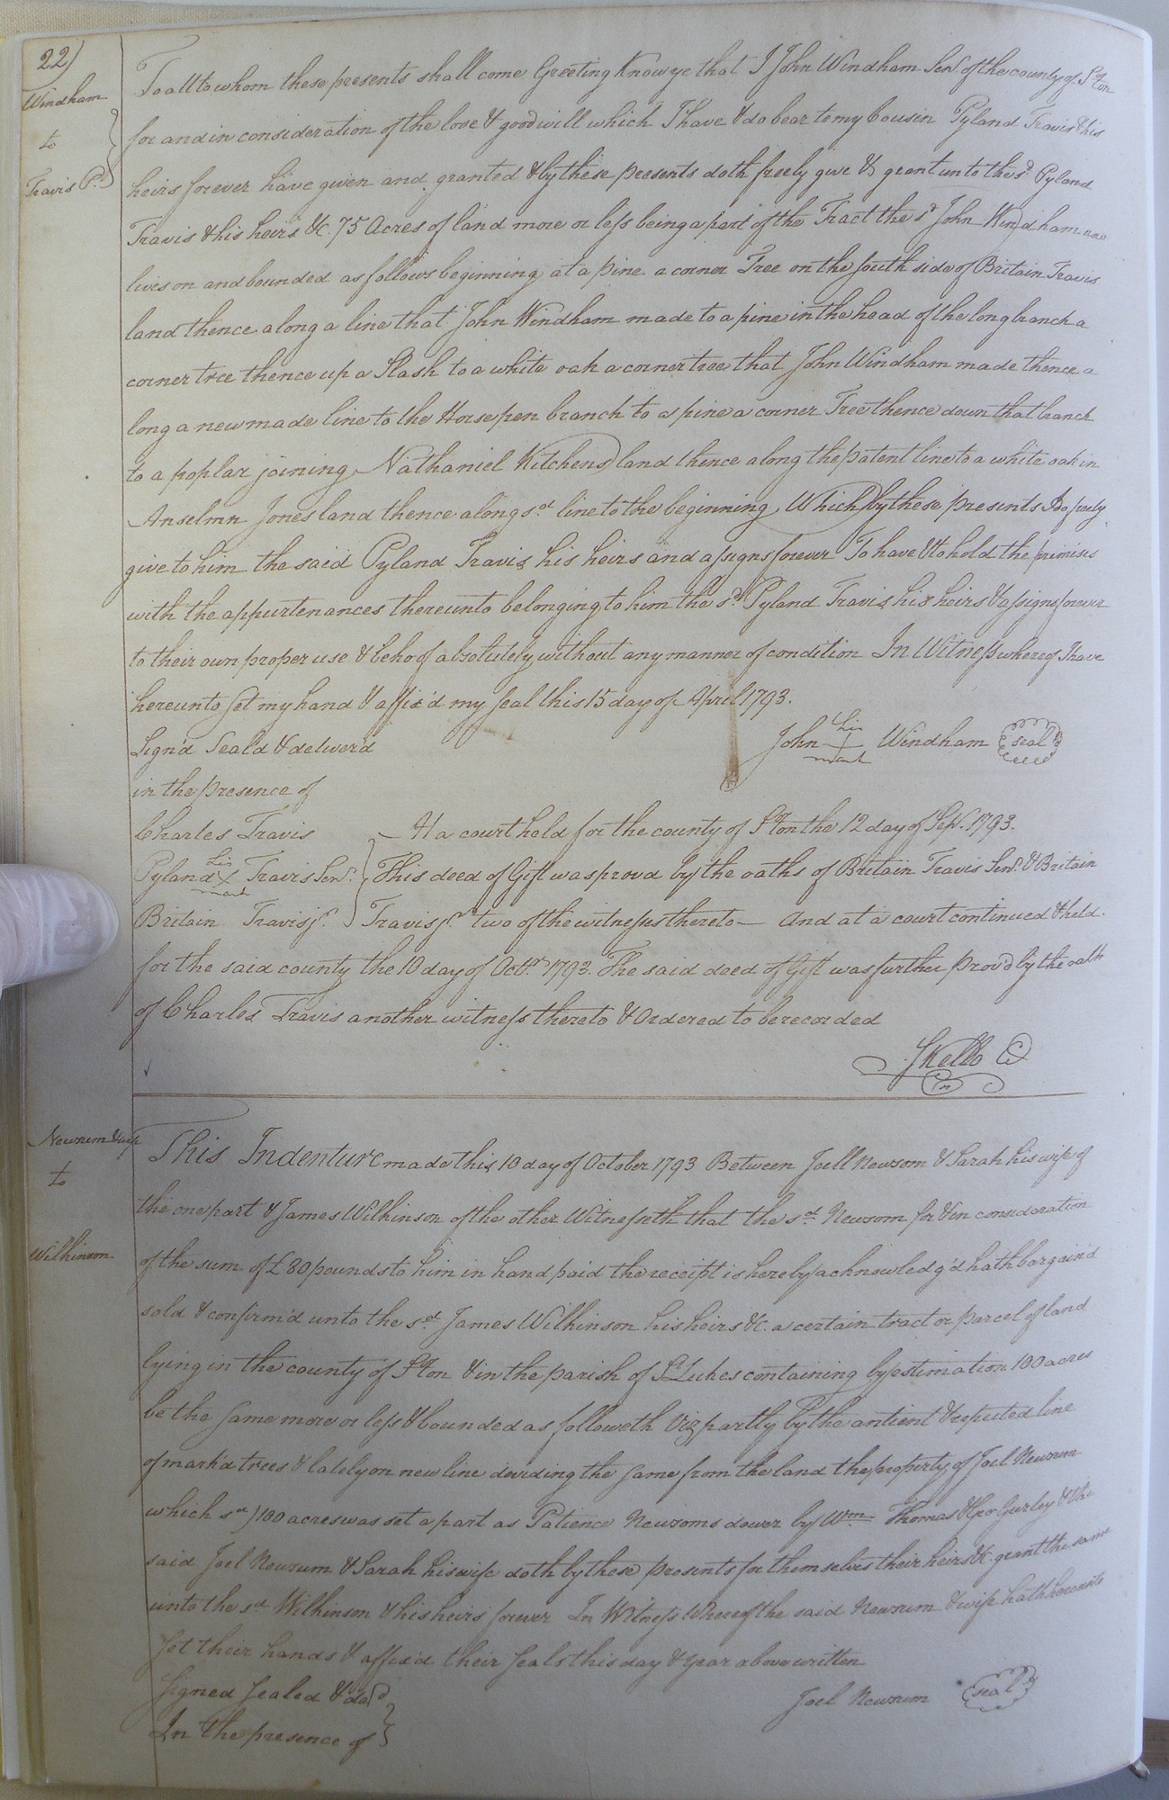 22)
Windham
to
Travis Pd.
To all to whom these presents shall come Greeting Know ye that I John Windham Senr. of the county of S.ton
for and in consideration of the love & good will which I have & do bear to my Cousin Pyland Travis & his
heirs forever have given and granted & by these presents doth freely give & grant unto the sd. Pyland
Travis & his heirs &c. 75 Acres of land more or less being a part of the Tract the sd. John Windham now
lives on and bounded as follows beginning at a pine a corner Tree on the south side of Britain Travis
land thence along a line that John Windham made to a pine in the head of the long branch a
corner tree thence up a Slash to a white oak a corner tree that John Windham made thence a
long a new made line to the Horsepen branch to a pine a corner Tree thence down that branch
to a poplar joining Nathaniel Kitchens land thence along the patent line to a white oak in
Anselmn Jones land thence along sd. line to the beginning Which by these presents I do freely
give to him the said Pyland Travis his heirs and assigns forever To have & to hold the primises
with the appurtenances thereunto belonging to him the sd. Pyland Travis his heirs & assigns forever
to their own proper use & behoof absolutely without any manner of condition In Witness whereof I have
hereunto set my hand & affix'd my seal this 15 day of April 1793.
Sign'd Seal'd & deliver'd
John his X mark Windham seal
in the presence of
Charles Travis
Pyland his X mark Travis Senr.
Britain Travis jr.
At a court held for the county of S.ton the 12 day of Sepr. 1793.
This deed of Gift was provd by the oaths of Britain Travis Senr. & Britain
Travis jr. two of the witnesses thereto — And at a court continued & held
for the said county the 10 day of Octr. 1793. The said deed of Gift was further prov'd by the oath
of Charles Travis another witness thereto & Ordered to be recorded
Kello
Newsum & wife
to
Wilkinson
This Indenture made this 10 day of October 1793 Between Joell Newsom & Sarah his wife of
the one part & James Wilkinson of the other Witnesseth that the sd. Newsom for & in consideration
of the sum of £80 pounds to him in hand paid the receipt is hereby acknowledg'd hath bargain'd
sold & confirm'd unto the sd. James Wilkinson his heirs &c. a certain tract or parcel of land
lying in the county of S.ton & in the parish of St. Lukes containing by estimation 100 acres
be the same more or less & bounded as followeth Viz partly by the antient & reputed line
of mark'd trees & lately on new line deviding the same from the land the property of Joel Newsum
which sd. 100 acres was set apart as Patience Newsoms dower by Wm. Thomas & Geo Gurley & the
said Joel Newsum & Sarah his wife doth by these presents for themselves their heirs &c. grant the same
unto the sd. Wilkinson & his heirs forever In Witness Whereof the said Newsum & wife hath hereunto
set their hands & affixd their seals this day & year above written
Signed Sealed & deld
In the presence of
Joel Newsum seal